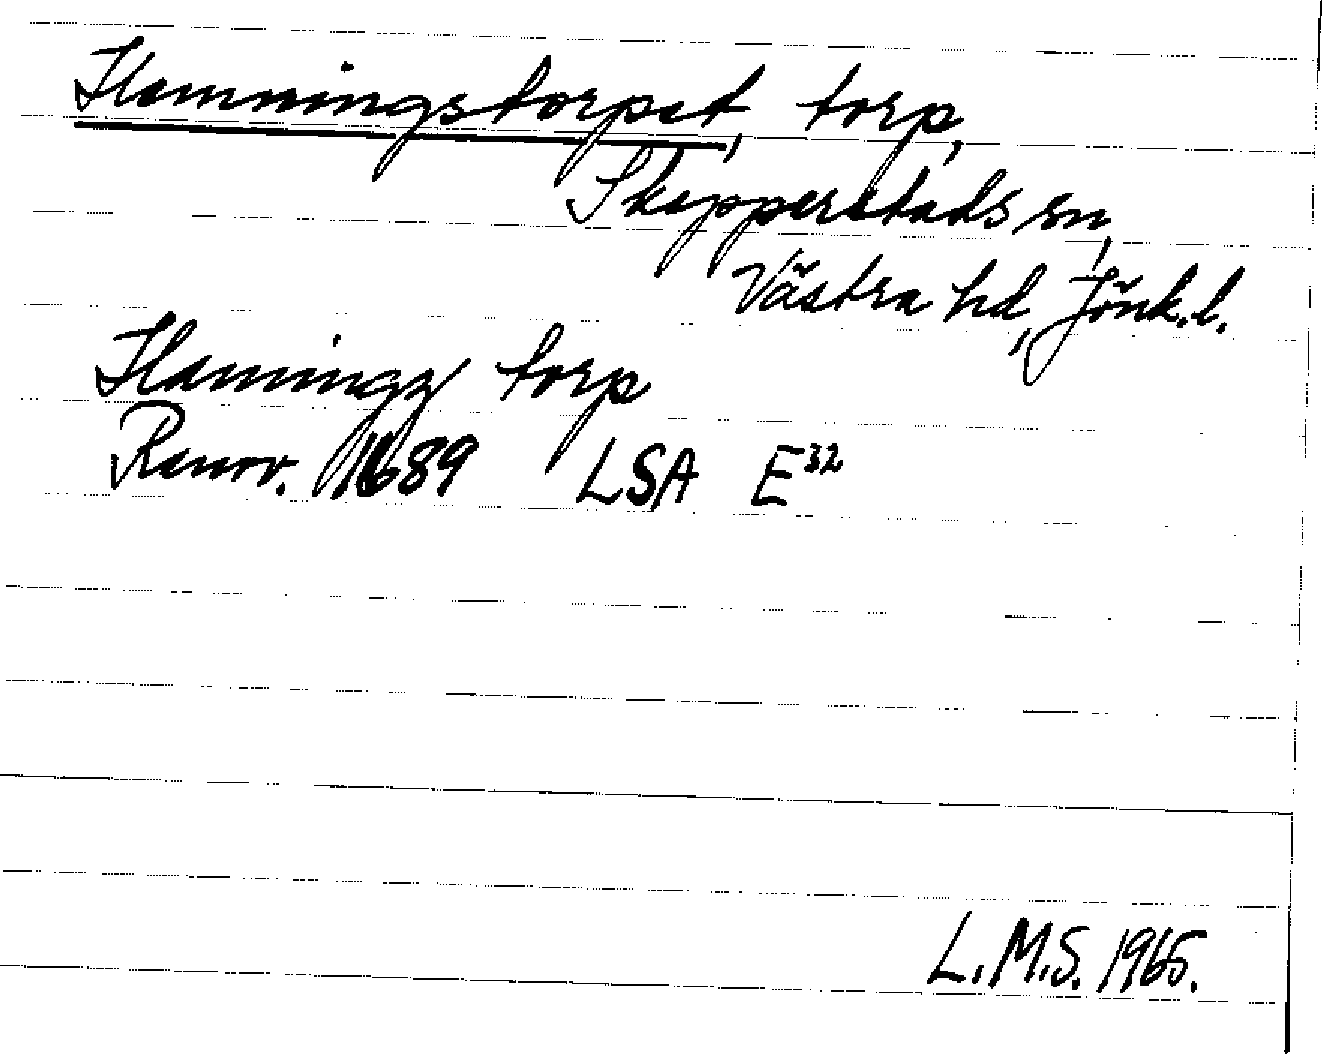 Hemmingstorpet, torp,
Skepperstads sn,
Västra hd, Jönk.l.
Hemmingz torp
Renov. 1689 LSA E32
L.M.S. 1965.